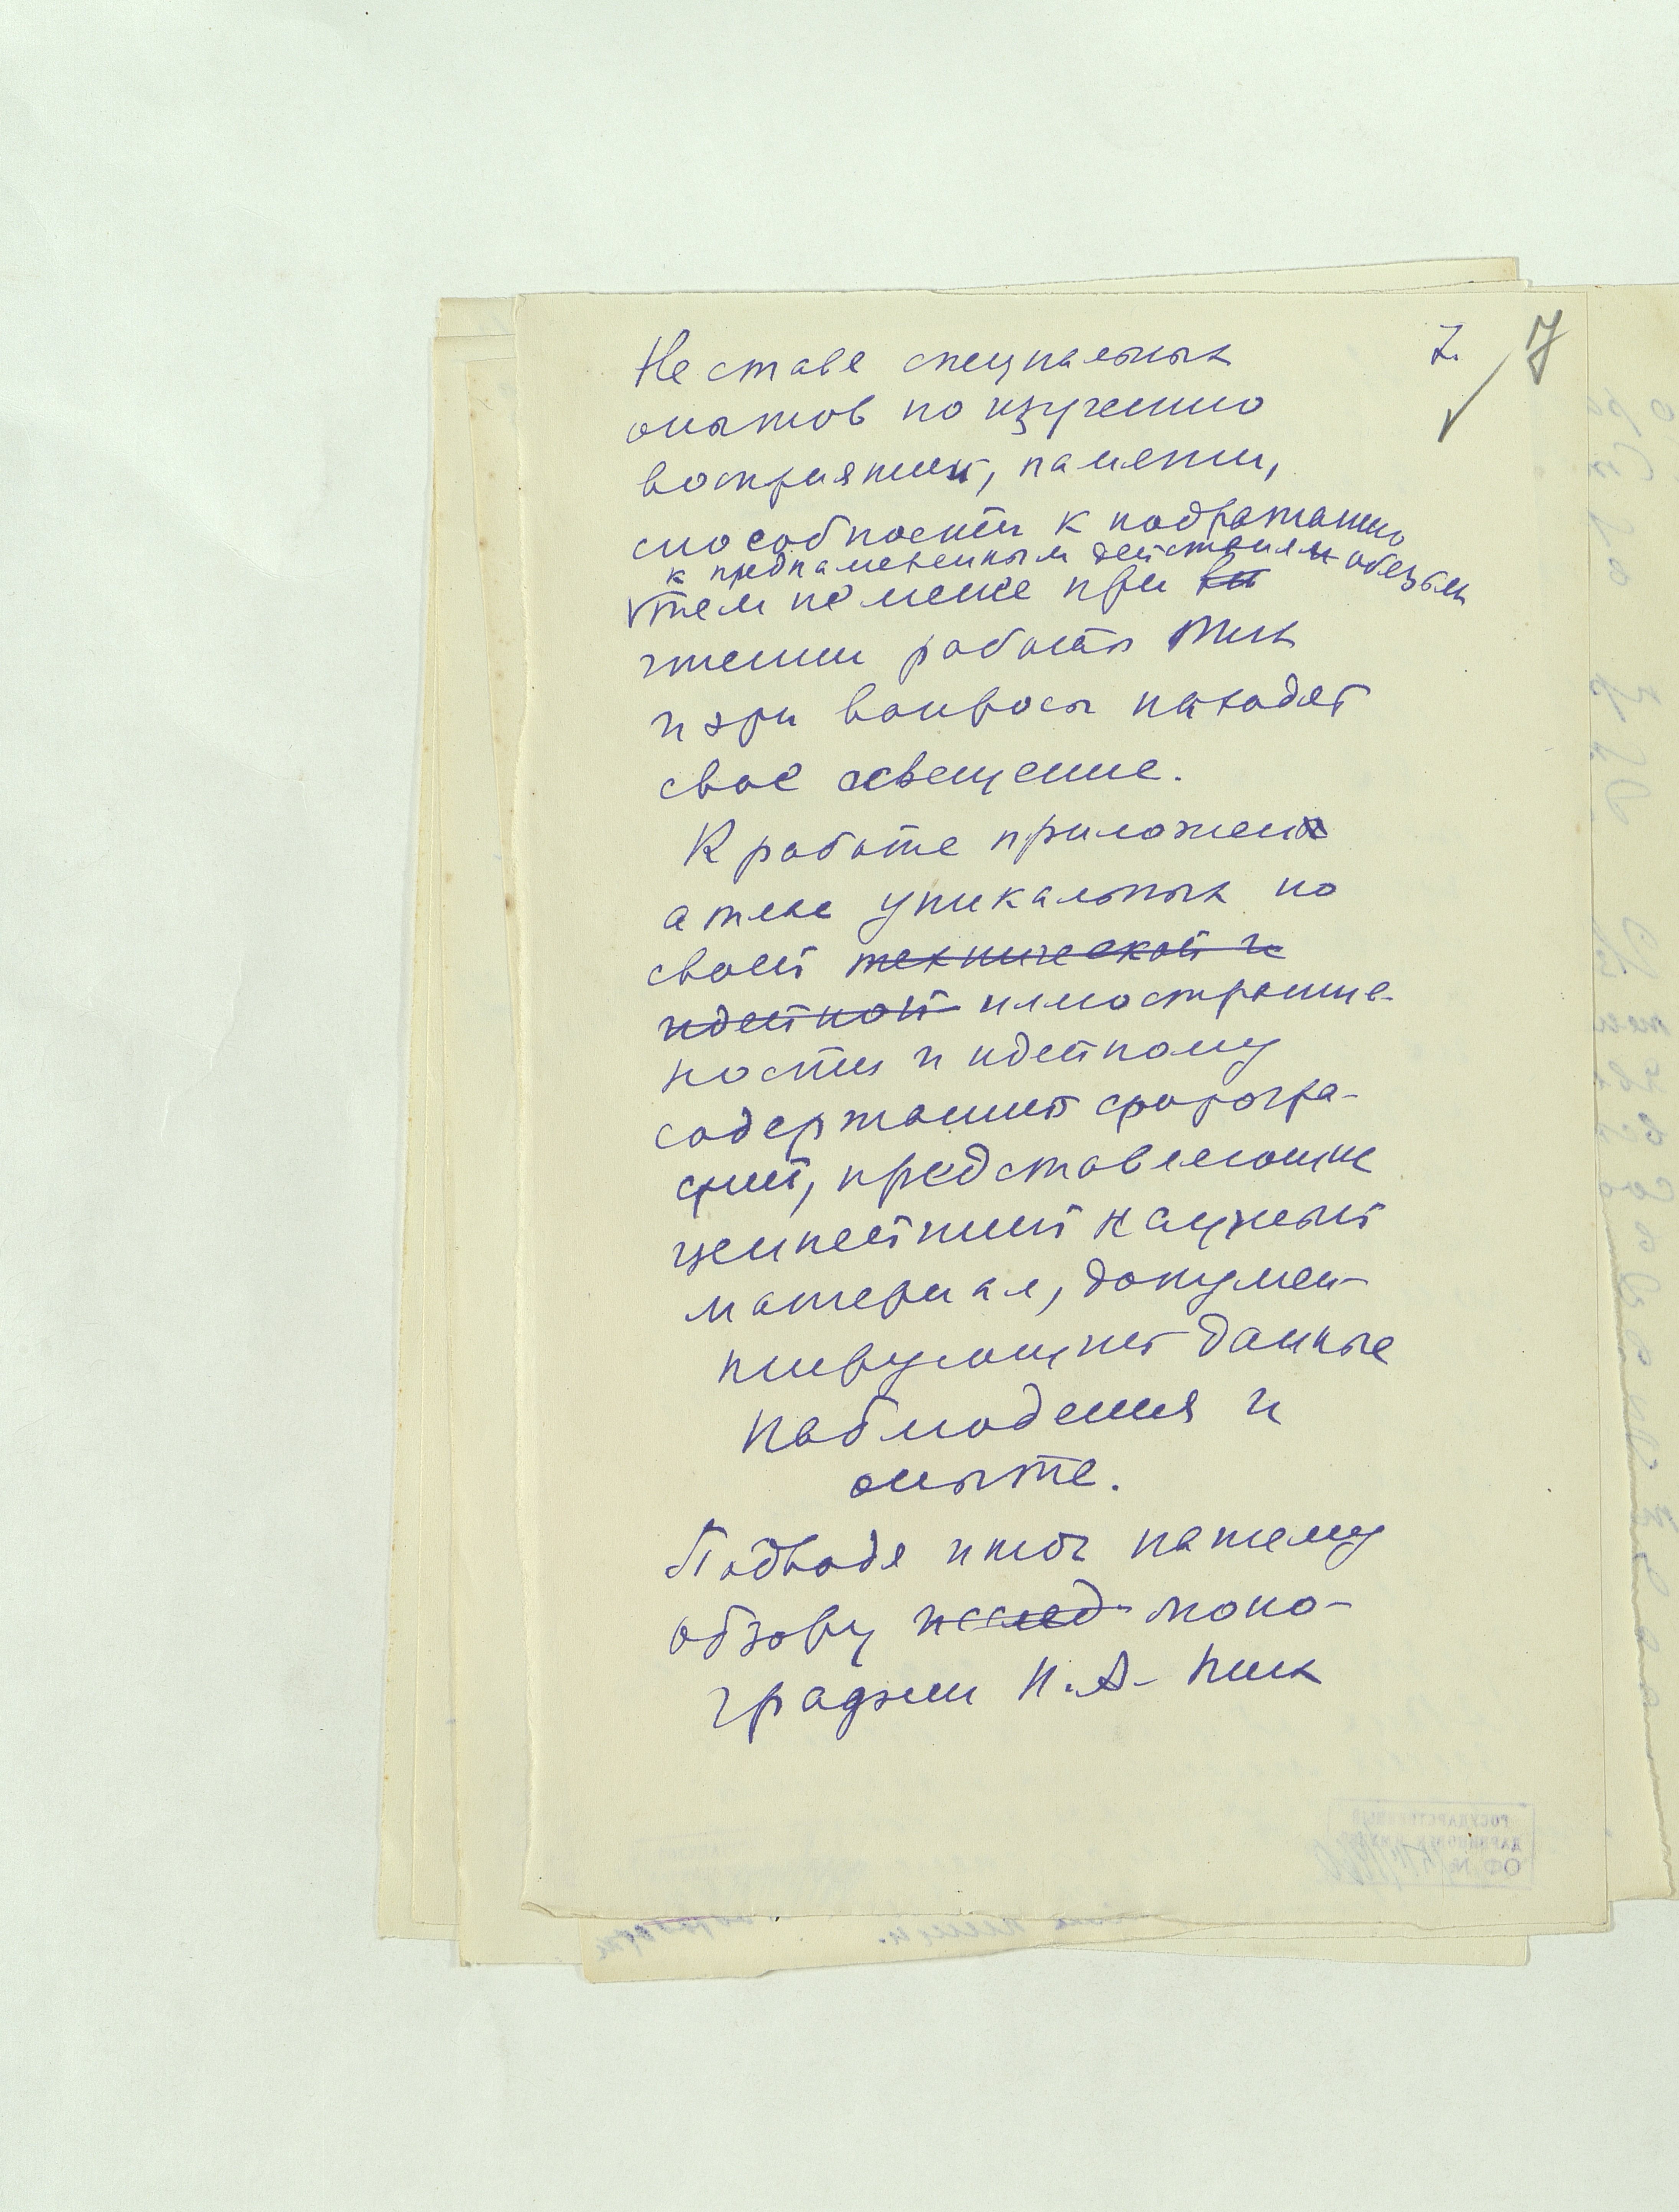 7. 7
Не ставя специальных
опытов по изучению
восприятий, памяти,
способности к подражанию
к преднамеренным действиям обезьян
тем не менее при
чтении работы Тих
и эти вопросы находят
свое освещение.
К работе приложен
атлас уникальных по
своей технической и
идейной иллюстратив-
ности и идейному
содержанию фотогра-
фий, представляющих
ценнейший научный
материал, докумен-
тирующий данные
наблюдения и
опыта.
Подводя итог нашему
обзору исслед моно-
графии Н.А. Тих
ГОСУДАРСТВЕННЫЙ
ДАРВИНОВСКИЙ МУЗЕЙ
ОФ №